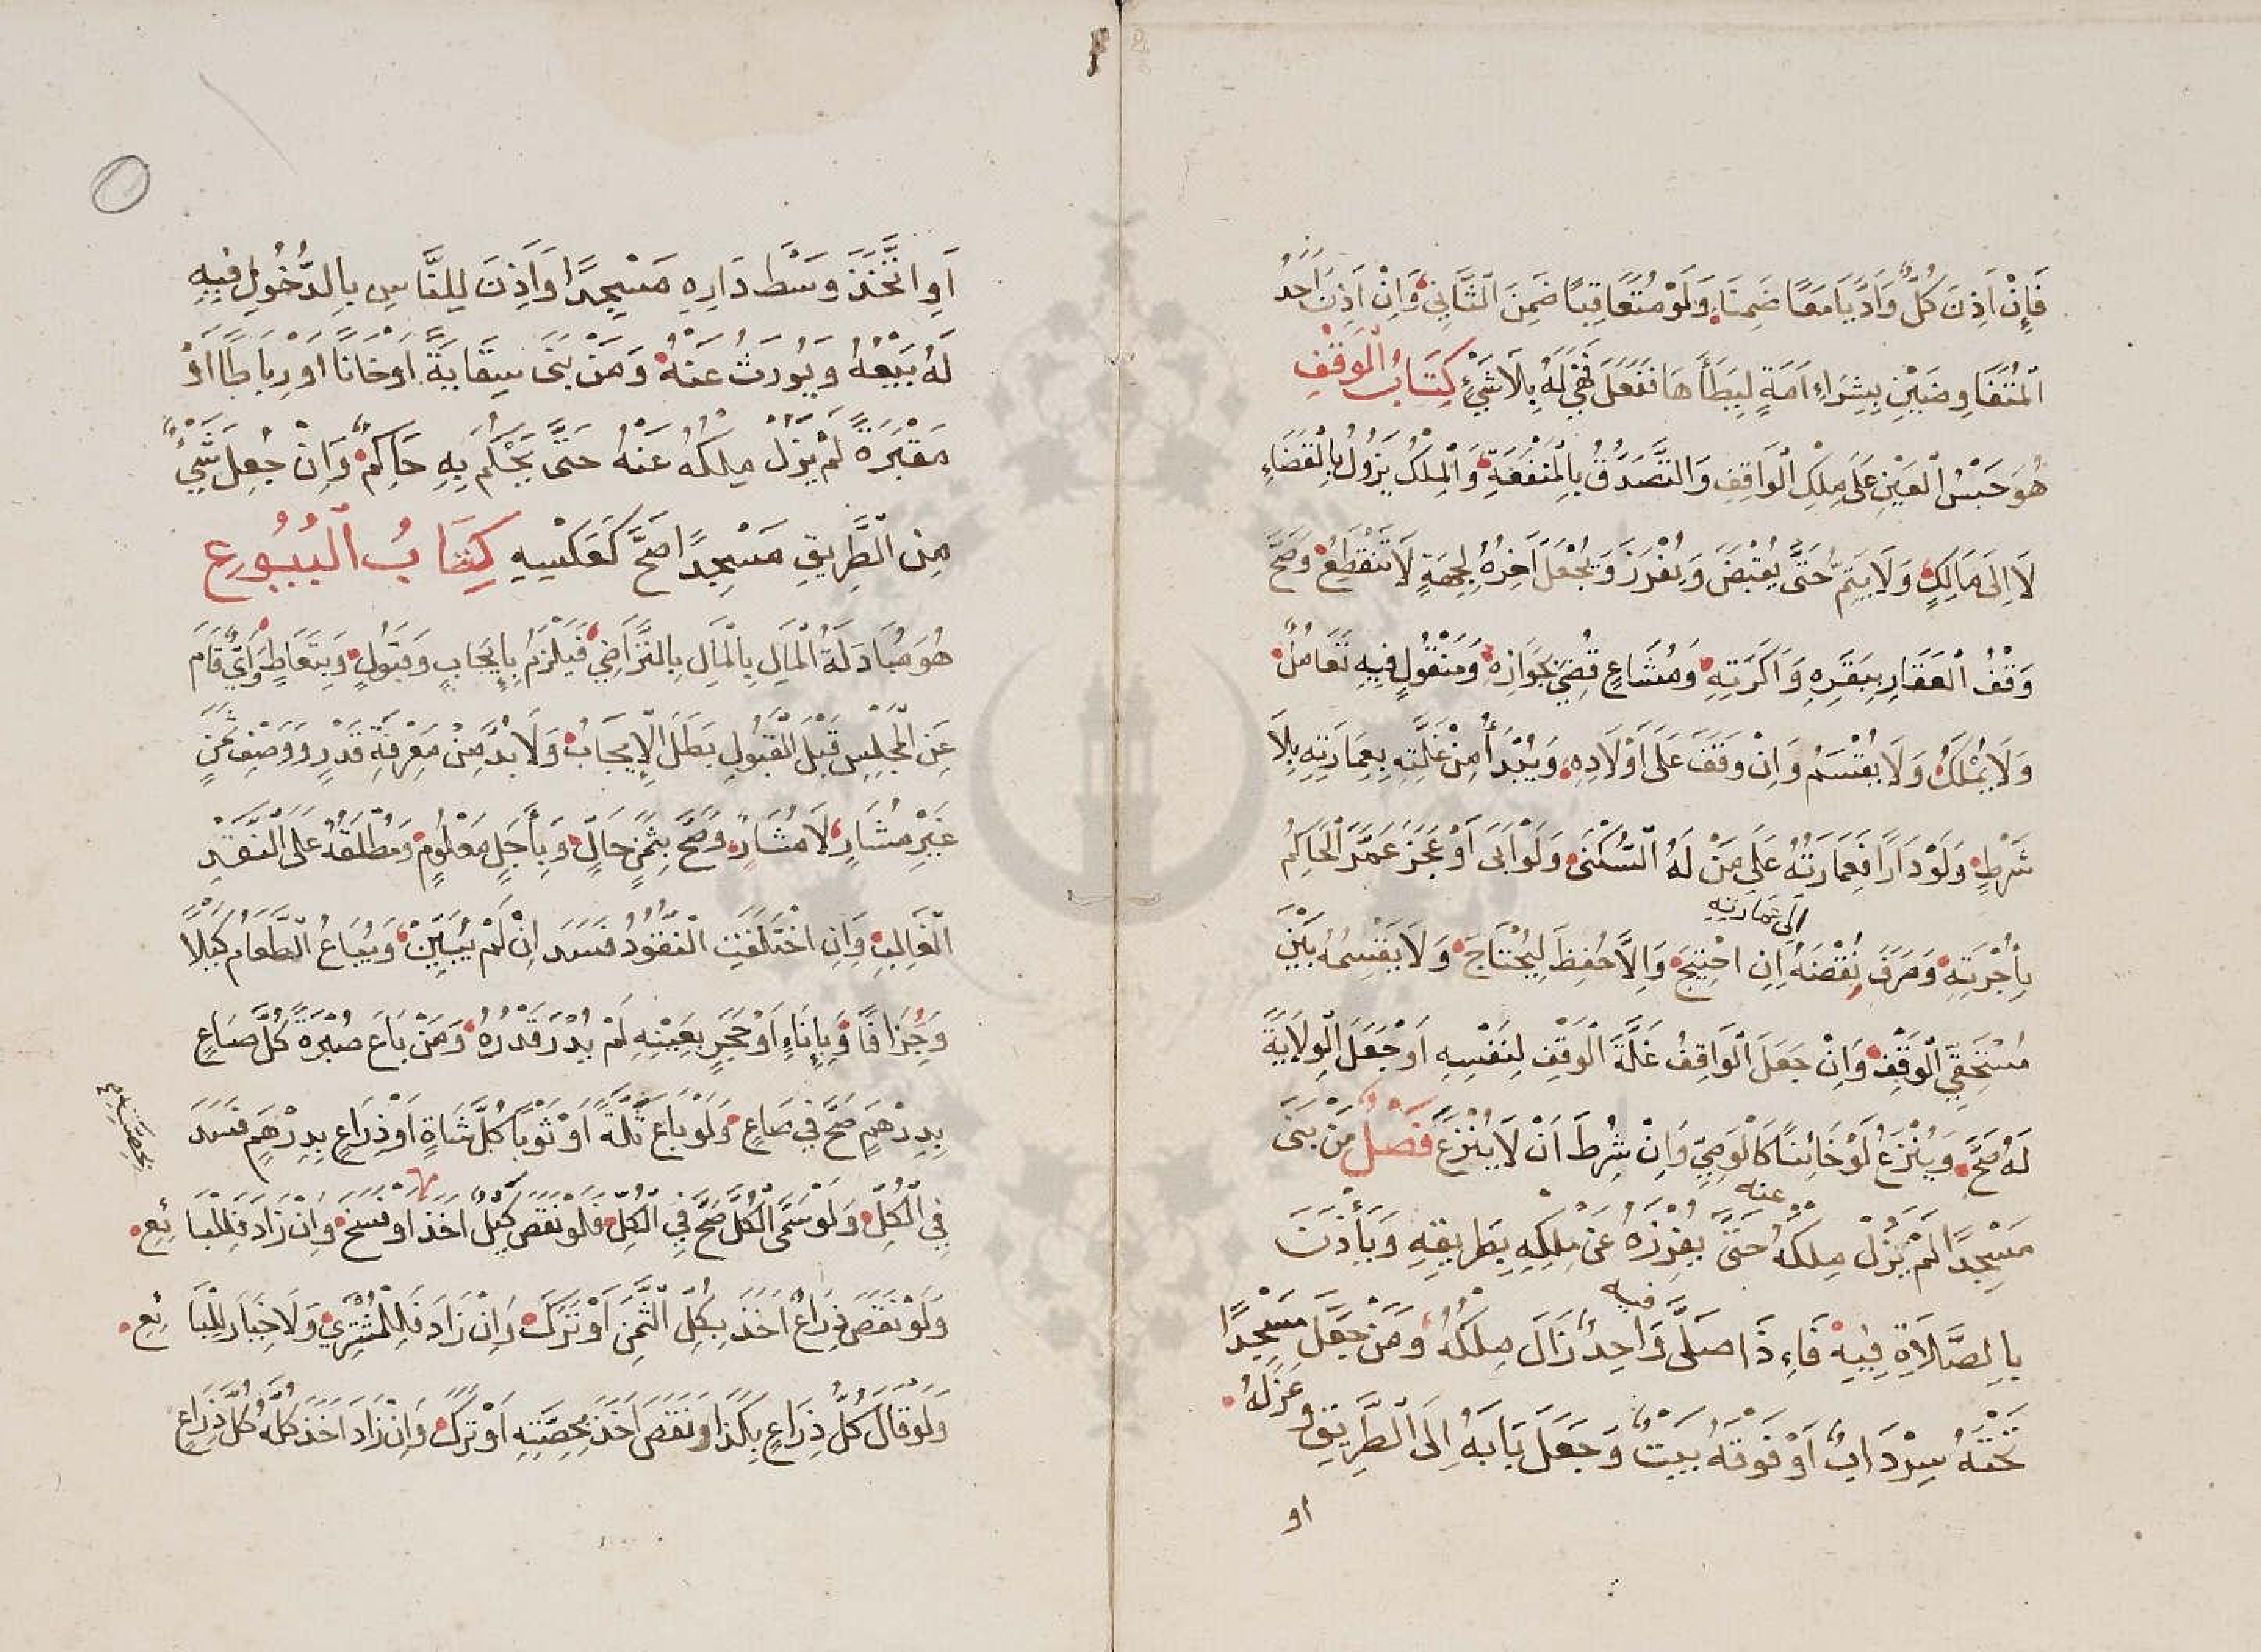 فَإِنْ اَذِنَ كُلٌّ وَادَّيَا مَعًا ضَمِنَا وَلَوْ مُتَعَاقِبًا ضَمِنَ الثَّانِي وَاِنْ اَذِنَ اَحَدُ
الْمُتَفَاوِضَيْنِ بِشِرَاءِ اَمَةٍ لِيَطَأَهَا فَفَعَلَ فَهِيَ لَهُ بِلَا شَيْءٍ كِتَابُ الْوَقْفِ
هُوَ حَبْسُ الْعَيْنِ عَلَى مِلْكِ الْوَاقِفِ وَالتَّصَدُّقُ بِالْمَنْفَعَةِ وَالْمِلْكُ يَزُولُ بِالْقَضَاءِ
لَا اِلَى مَالِكٍ وَلَا يَتِمُّ حَتَّى يُقْبَضَ وَيُفْرَزَ وَيُجْعَلَ آخِرُهُ لِجِهَةٍ لَا تَنْقَطِعُ وَصَحَّ
وَقْفُ الْعَقَارِ بِبَقَرِهِ وَاَكَرَتِهِ وَمُشَاعٍ قُضِيَ بِجَوَازِهِ وَمَنْقُولٍ فِيهِ تَعَامُلٌ
وَلَا يُمْلَكُ وَلَا يُقْسَمُ وَاِنْ وَقَفَ عَلَى اَوْلَادِهِ وَيُبْدَأُ مِنْ غَلَّتِهِ بِعِمَارَتِهِ بِلَا
شَرْطٍ وَلَوْ دَارًا فَعِمَارَتُهُ عَلَى مَنْ لَهُ السُّكْنَى وَلَوْ اَبَى اَوْ عَجَزَ عَمَّرَ الْحَاكِمُ
اِلَى عِمَارَتِهِ
بِأُجْرَتِهِ وَصَرَفَ نُقْضَهُ اِنِ احْتِيجَ وَاِلَّا حُفِظَ لِيُحْتَاجَ وَلَا يَقْسِمُهُ بَيْنَ
مُسْتَحِقِّي الْوَقْفِ وَاِنْ جَعَلَ الْوَاقِفُ غَلَّةَ الْوَقْفِ لِنَفْسِهِ اَوْ جَعَلَ الْوِلَايَةَ
لَهُ صَحَّ وَيُنْزَعُ لَوْ خَائِنًا كَالْوَصِيِّ وَاِنْ شُرِطَ اَنْ لَا يُنْزَعَ فَصْلٌ مَنْ بَنَى
عنه
مَسْجِدًا لَمْ يَزُلْ مِلْكُهُ حَتَّى يُفْرِزَهُ عَنْ مِلْكِهِ بِطَرِيقِهِ وَيَأْذَنَ
فيه
بِالصَّلَاةِ فِيهِ فَاِذَا صَلَّى وَاحِدٌ زَالَ مِلْكُهُ وَمَنْ جَعَلَ مَسْجِدًا
تَحْتَهُ سِرْدَابٌ اَوْ فَوْقَهُ بَيْتٌ وَجَعَلَ بَابَهُ اِلَى الطَّرِيقِ وعَزَلَهُ
او
اَوِ اتَّخَذَ وَسْطَ دَارِهِ مَسْجِدًا وَاَذِنَ لِلنَّاسِ بِالدُّخُولِ فِيهِ
لَهُ بَيْعُهُ وَيُورَثُ عَنْهُ وَمَنْ بَنَى سِقَايَةً اَوْ خَانًا اَوْ رِبَاطًا اَوْ
مَقْبَرَةً لَمْ يَزُلْ مِلْكُهُ عَنْهُ حَتَّى يَحْكُمَ بِهِ حَاكِمٌ وَاِنْ جُعِلَ شَيْءٌ
مِنَ الطَّرِيقِ مَسْجِدًا صَحَّ كَعَكْسِهِ كِتَابُ الْبُيُوعِ
هُوَ مُبَادَلَةُ الْمَالِ بِالْمَالِ بِالتَّرَاضِي فَيَلْزَمُ بِإِيجَابٍ وَقَبُولٍ وَبِتَعَاطٍ وَاَيٌّ قَامَ
عَنِ الْمَجْلِسِ قَبْلَ الْقَبُولِ بَطَلَ الْإِيجَابُ وَلَا بُدَّ مِنْ مَعْرِفَةِ قَدْرٍ وَوَصْفِ ثَمَنٍ
غَيْرِ مُشَارٍ لَا مُشَارٍ وَصَحَّ بِثَمَنٍ حَالٍّ وَبِأَجَلٍ مَعْلُومٍ وَمُطْلَقُهُ عَلَى النَّقْدِ
الْغَالِبِ وَاِنِ اخْتَلَفَتِ النُّقُودُ فَسَدَ اِنْ لَمْ يُبَيَّنْ وَيُبَاعُ الطَّعَامُ كَيْلًا
وَجُزَافًا وَبِإِنَاءٍ اَوْ حَجَرٍ بِعَيْنِهِ لَمْ يُدْرَ قَدْرُهُ وَمَنْ بَاعَ صُبْرَةً كُلَّ صَاعٍ
بِدِرْهَمٍ صَحَّ فِي صَاعٍ وَلَوْ بَاعَ ثَلَّةً اَوْ ثَوْبًا كُلَّ شَاةٍ اَوْ ذِرَاعٍ بِدِرْهَمٍ فَسَدَ
بحصته
فِي الْكُلِّ وَلَوْ سَمَّى الْكُلَّ صَحَّ فِي الْكُلِّ فَلَوْ نَقَصَ كَيْلٌ اَخَذَ اَوْ فَسَخَ وَاِنْ زَادَ فَلِلْبَائِعِ
وَلَوْ نَقَصَ ذِرَاعٌ اَخَذَ بِكُلِّ الثَّمَنِ اَوْ تَرَكَ وَاِنْ زَادَ فَلِلْمُشْتَرِي وَلَا خِيَارَ لِلْبَائِعِ
وَلَوْ قَالَ كُلُّ ذِرَاعٍ بِكَذَا وَنَقَصَ اَخَذَ بِحِصَّتِهِ اَوْ تَرَكَ وَاِنْ زَادَ اَخَذَ كُلَّهُ كُلَّ ذِرَاعٍ